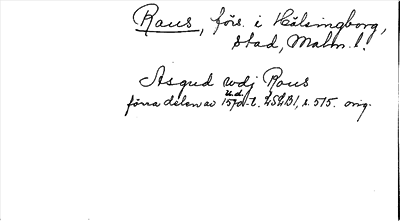 Raus, förs. i Hälsingborg,
stad, Malm. l.
Asgud wdj Raus
förra delen av 1570-t. LSLB1, s. 515. orig.